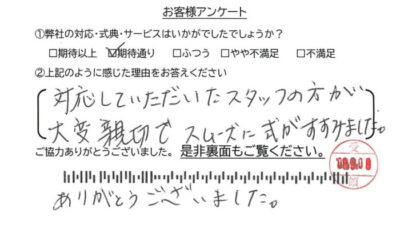 お客様アンケート
①弊社の対応・式典・サービスはいかがでしたでしょうか？
□期待以上 ☑期待通り □ふつう □やや不満足 □不満足
②上記のように感じた理由をお答えください
対応していただいたスタッフの方が
大変親切でスムーズに式がすすみました。
ご協力ありがとうございました。是非裏面もご覧ください。
ありがとうございました。